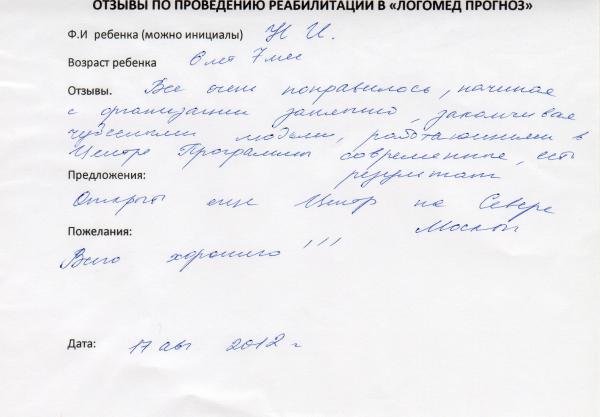 ОТЗЫВЫ ПО ПРОВЕДЕНИЮ РЕАБИЛИТАЦИИ В «ЛОГОМЕД ПРОГНОЗ»
Ф.И ребенка (можно инициалы) Н И.
Возраст ребенка 6 лет 7 мес
Отзывы. Все очень понравилось, начиная
с организации занятий, заканчивая
чудесными людьми, работающими в
Центре Программы современные, есть
результат
Предложения:
Открыть еще Центр на Севере
Москвы
Пожелания:
Всего хорошего !!!
Дата: 17 авг 2012 г